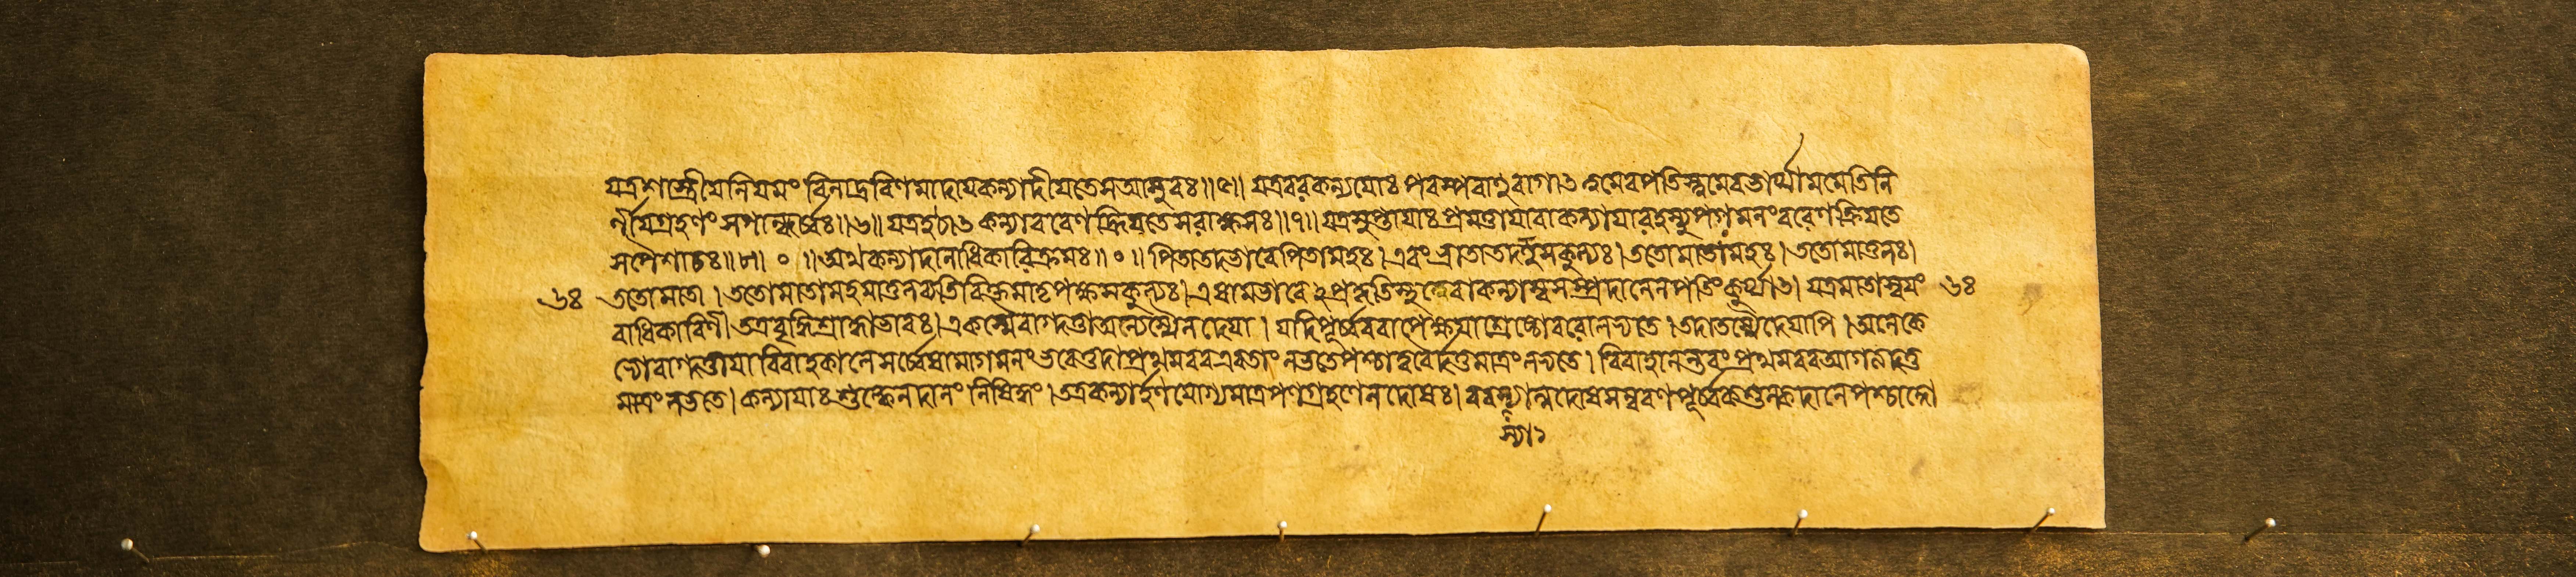 যত্রশাস্ত্রীয়নিয়মং বিনাদ্রবিণমাদায়কন্যাদীয়তেসআসুরঃ॥৫॥ যত্রবরকন্যয়োঃ পরস্পরানুরাগাৎ ত্বমেবপতিস্ত্বমেবভার্য্যামমেতিনি
র্ণীয়গ্রহণং সগান্ধর্ব্বঃ॥৬॥ যত্রহঠাৎ কন্যাবরেণহ্রিয়তেসরাক্ষসঃ॥৭॥ যত্রসুপ্তায়াঃপ্রমত্তায়াবাকন্যায়ারহস্যুপগমনংবরেণক্রিয়তে
সপৈশাচঃ॥৮॥ ০ ॥অথকন্যাদানাধিকারিক্রমঃ॥ ০ ॥ পিতাতদভাবেপিতামহঃ। এবং ভ্রাতাতদসকুল্যঃ। ততোমাতামহঃ। ততোমাতুলঃ।
৬৪ ততোমাতা। ততোমাতামহমাতুলব্যতিরিক্তমাতৃপক্ষসকুল্যঃ। এষামভাবে প্রকৃতিস্থ কন্যাস্বসম্প্রদানেনপতিংকুর্য্যাৎ। যত্রমাতাস্বয়ং ৬৪
বাধিকারিণী তত্রবৃদ্ধিশ্রাদ্ধাভাবঃ। একস্মৈবাগদত্তাঅন্যস্মৈনদেয়া। যদিপূর্ব্ববরাপেক্ষয়াশ্রেষ্ঠোবরোলভ্যতে। তদাতস্মৈদেয়াপি। অনেকে
ভ্যোবাগদত্তায়া বিবাহকালে সর্ব্বেষামাগমনং ভবেত্তদাপ্রথমবরএবতাং লভতেপশ্চাদ্বরোদত্তমাত্রং লভতে। বিবাহানন্তরং প্রথমবরআগতোদত্ত
মাত্রং লভতে। কন্যায়াঃ শুল্কেনদানং নিষিদ্ধং। অত্রকন্যার্হণযোগ্যমাত্রপণগ্রহণেনদোষঃ। বরস্য দোষসম্বরণপূর্ব্বকশুল্কদানেপশ্চাদ্দো